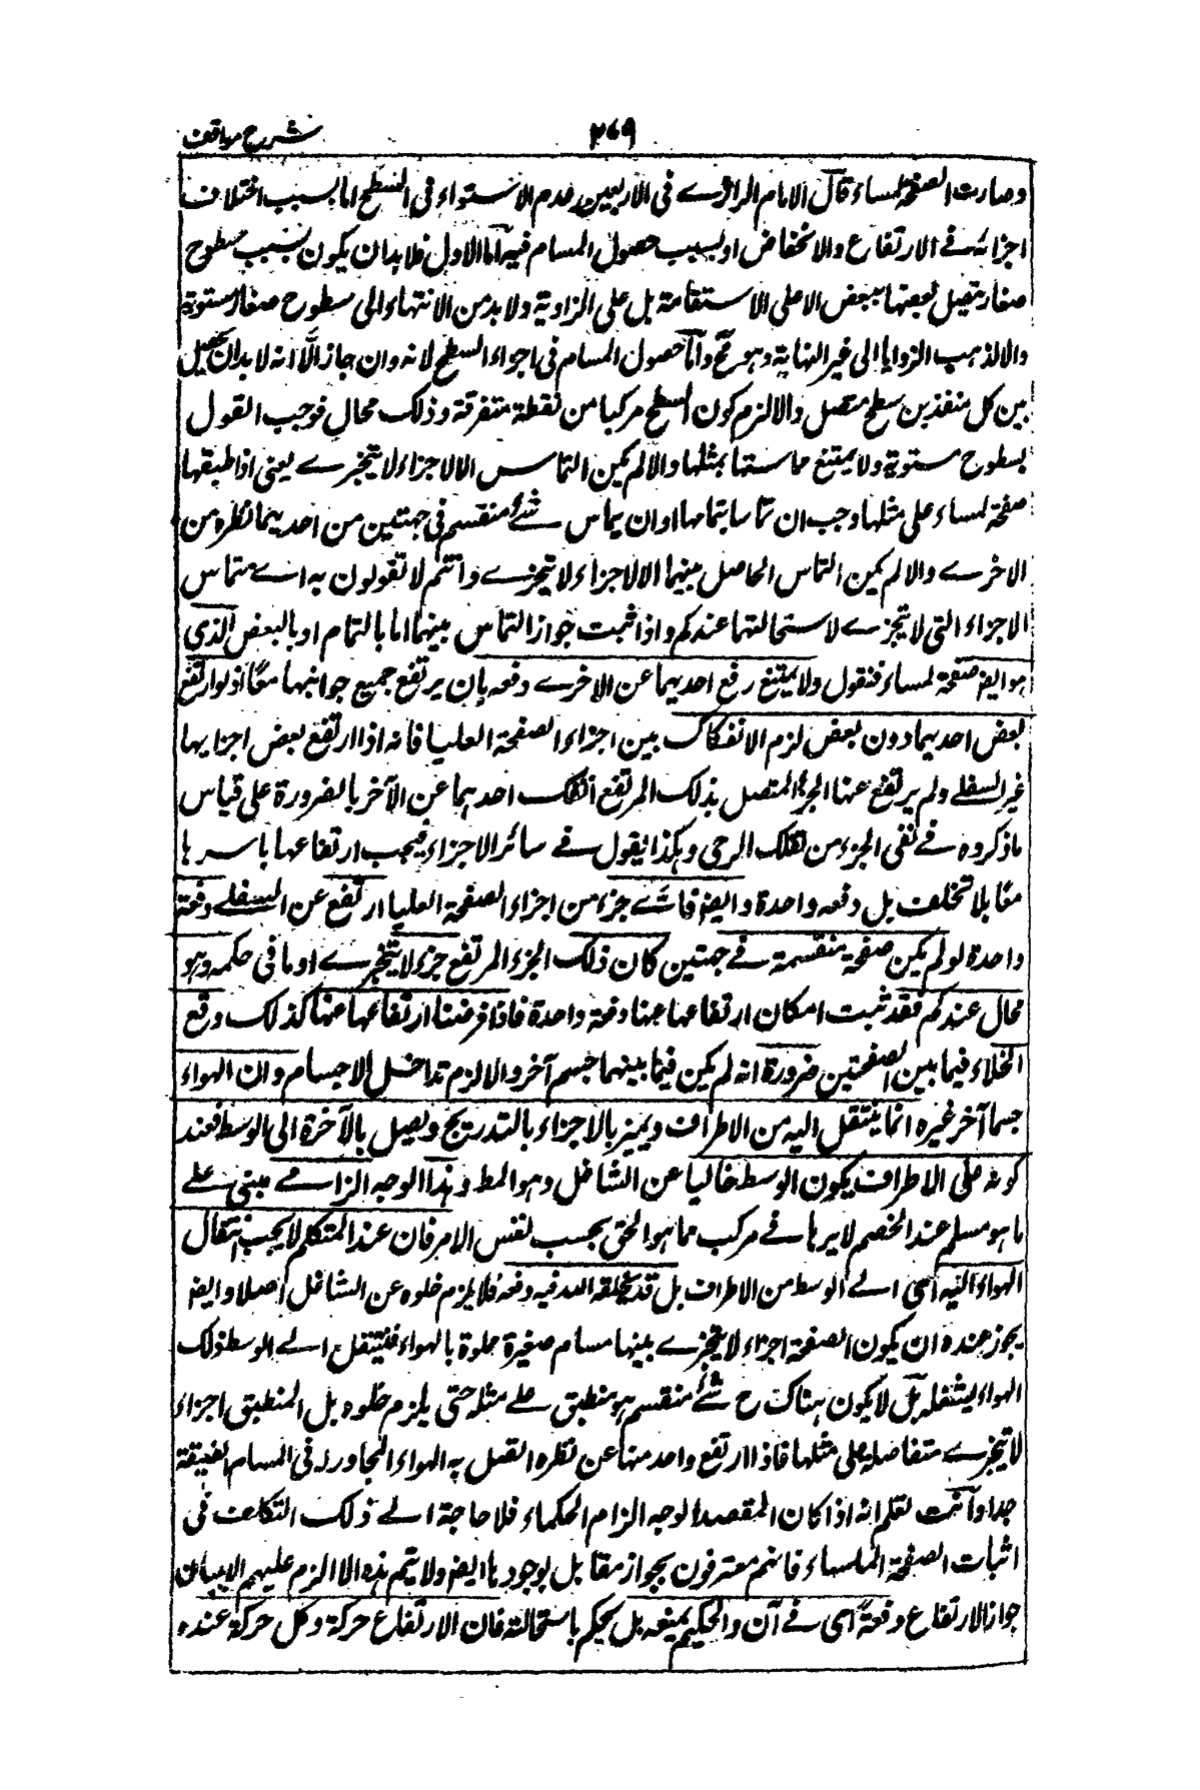 ٢٦٩ شرح مواقف
وصارت الصفحة لمساء قال الامام الرازے فی الاربعين عدم الاستواء فی السطح اما بسبب اختلاف
اجزائه فے الارتفاع والانخفاض او بسبب حصول المسام فيه اما الاول فلا بد ان يكون بسبب سطوح
صغار يتصل بعضها ببعض لا علی الاستقامة بل علی الزاوية ولا بد من الانتهاء الی سطوح صغار مستوية
والا لذهب الزوايا الی غير النهاية وهو مح واما حصول المسام فی اجزاء السطح لانه وان جاز الا انه لا بد ان يحصل
بين كل منفذين سطح متصل والا لزم كون السطح مركبا من نقطة متفرقة وذلك محال فوجب القول
بسطوح مستوية ولا يمتنع مماستها بمثلها والا لم يكن التماس الا لاجزاء لا يتجزے يعنی اذا طبقها
صفحة لمساء علی مثلها وجب ان تماسا بتمامها او ان يماس شئ منقسم فی جهتين من احديهما نظره من
الاخرے والا لم يكن التماس الحاصل بينهما الا لاجزاء لا يتجزے وانتم لا تقولون به اے بتماس
الاجزاء التی لا يتجزے لاستحالتها عندكم واذا ثبت جواز التماس بينهما اما بالتمام او بالبعض الذی
هو ايضا صفحة لمساء فنقول ولا يمتنع رفع احديهما عن الاخرے دفعه بان يرتفع جميع جوانبها معا اذ لو ارتفع
بعض احديهما دون بعض لزم الانفكاك بين اجزاء الصفحة العليا فانه اذا ارتفع بعض اجزايها
غير السفلے ولم يرتفع عنها الجزء المتصل بذلك المرتفع انفك احدهما عن الآخر بالضرورة علی قياس
ما ذكروه فے نفی الجزء من تفكك الرحی وهكذا يقول فے سائر الاجزاء فيجب ارتفاعها باسرها
معا بلا تخلف بل دفعه واحدة وايضا فاے جزء من اجزاء الصفحة العليا ارتفع عن السفلے دفعة
واحدة لو لم يكن صفحة منقسمة فے جهتين كان ذلك الجزء المرتفع جزء لا يتجزے او ما فی حكمه وهو
محال عندكم فقد ثبت امكان ارتفاعها عنها دفعة واحدة فاذا فرضنا ارتفاعها عنها كذلك وقع
الخلاء فيما بين الصفحتين ضرورة انه لم يكن فيما بينهما جسم آخر والا لزم تداخل الاجسام وان الهواء
جسما آخر غيره انما ينتقل اليه من الاطراف ويمر بالاجزاء بالتدريج ويصل بالآخرة الی الوسط فعند
كونه علی الاطراف يكون الوسط خاليا عن الشاغل وهو المط وهذا الوجه الزامے مبنی علے
ما هو مسلم عند الخصم لا برهانے مركب مما هو الحق بحسب نفس الامر فان عند المتكلم لا يجب انتقال
الهواء اليه ای الے الوسط من الاطراف بل قد يخلقه الله فيه دفعه فلا يلزم خلوه عن الشاغل اصلا وايضا
يجوز عنده ان يكون الصفحة اجزاء لا يتجزے بينها مسام صغيرة مملوة بالهواء فينتقل الے الوسط ذلك
الهواء ليشغله بل لا يكون هناك ح شئ منقسم هو منطبق علے مثله حتی يلزم خلوه بل المنطبق اجزاء
لا يتجزے متفاصلة علی مثلها فاذا ارتفع واحد منها عن نظره اتصل به الهواء المجاور له فی المسام الضيقة
جدا وانت تعلم انه اذا كان المقصد الوجه الزام الحكماء فلا حاجة الے ذلك التكلف فی
اثبات الصفحة الملساء فانهم معترفون بجواز مقابل بوجودها ايضا ولا يتم هذه الا الزم عليهم الا ببيان
جواز الارتفاع دفعة ای فے آن والحكيم يمنعه بل يحكم باستحالته فان الارتفاع حركة وكل حركة عنده